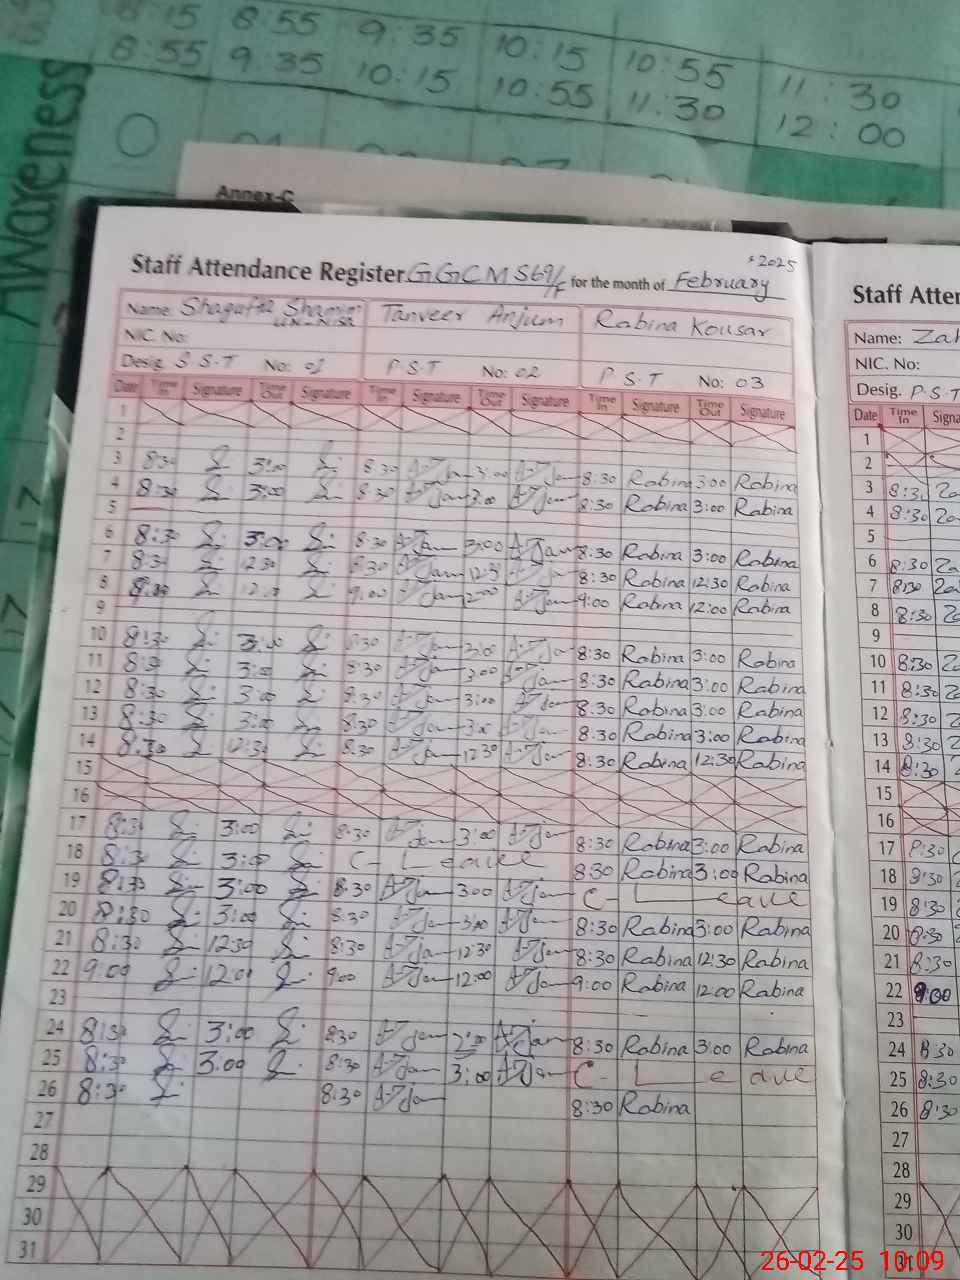 8:15 8:55 9:35 10:15 10:55 11:30
8:55 9:35 10:15 10:55 11:30 12:00
Awareness
Annex-C
Staff Attendance Register GGCMS 69/F for the month of February 2025
Name: Shagufta Shamim Un-Nisa Tanveer Anjum Rabina Kousar
NIC. No:
Desig. S.S.T No: 01 P.S.T No: 02 P.S.T No: 03
Date Time In Signature Time Out Signature Time In Signature Time Out Signature Time In Signature Time Out Signature
1
2
3 8:30 3:00 8:30 3:00 8:30 Rabina 3:00 Rabina
4 8:30 3:00 8:30 3:00 8:30 Rabina 3:00 Rabina
5
6 8:30 3:00 8:30 3:00 8:30 Rabina 3:00 Rabina
7 8:30 12:30 8:30 12:30 8:30 Rabina 12:30 Rabina
8 9:00 12:00 9:00 12:00 9:00 Rabina 12:00 Rabina
9
10 8:30 3:00 8:30 3:00 8:30 Rabina 3:00 Rabina
11 8:30 3:00 8:30 3:00 8:30 Rabina 3:00 Rabina
12 8:30 3:00 8:30 3:00 8:30 Rabina 3:00 Rabina
13 8:30 3:00 8:30 3:00 8:30 Rabina 3:00 Rabina
14 8:30 12:30 8:30 12:30 8:30 Rabina 12:30 Rabina
15
16
17 8:30 3:00 8:30 3:00 8:30 Rabina 3:00 Rabina
18 8:30 3:00 C- Leave 8:30 Rabina 3:00 Rabina
19 8:30 3:00 8:30 3:00 C- Leave
20 8:30 3:00 8:30 3:00 8:30 Rabina 3:00 Rabina
21 8:30 12:30 8:30 12:30 8:30 Rabina 12:30 Rabina
22 9:00 12:00 9:00 12:00 9:00 Rabina 12:00 Rabina
23
24 8:30 3:00 8:30 8:30 Rabina 3:00 Rabina
25 8:30 3:00 8:30 3:00 C- Leave
26 8:30 8:30 8:30 Rabina
27
28
29
30
31
Staff Atter
Name: Zah
NIC. No:
Desig. P.S.T
Date Time In Signa
1
2
3 8:30
4 8:30
5
6 8:30
7 8:30
8 8:30
9
10 8:30
11 8:30
12 8:30
13 8:30
14 8:30
15
16
17 8:30
18 8:30
19 8:30
20 8:30
21 8:30
22 9:00
23
24 8:30
25 8:30
26 8:30
27
28
29
30
31
26-02-25 10:09